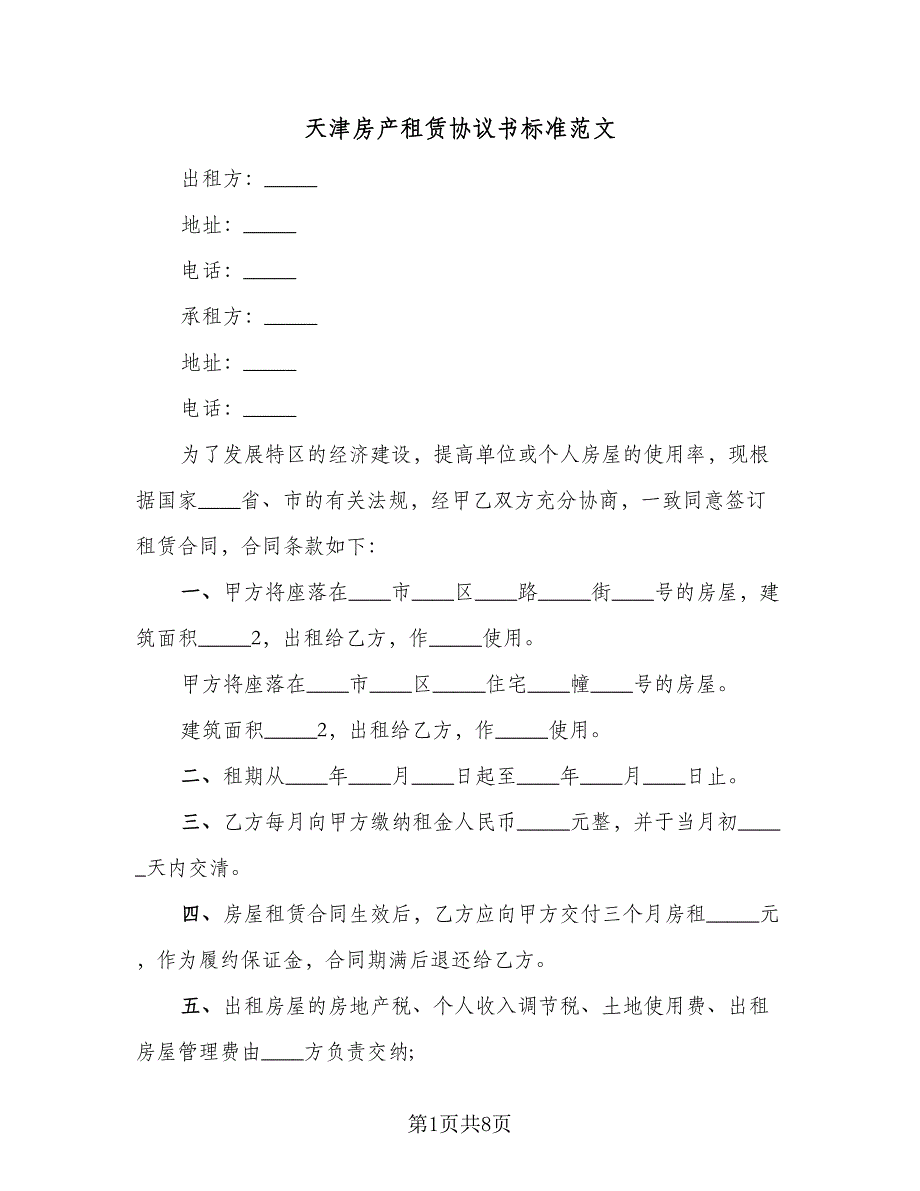 天津房产租赁协议书标准范文
出租方：_____
地址：_____
电话：_____
承租方：_____
地址：_____
电话：_____
为了发展特区的经济建设，提高单位或个人房屋的使用率，现根
据国家____省、市的有关法规，经甲乙双方充分协商，一致同意签订
租赁合同，合同条款如下：
一、甲方将座落在____市____区____路_____街____号的房屋，建
筑面积_____2，出租给乙方，作_____使用。
甲方将座落在____市____区_____住宅____幢____号的房屋。
建筑面积_____2，出租给乙方，作_____使用。
二、租期从____年____月____日起至____年____月____日止。
三、乙方每月向甲方缴纳租金人民币_____元整，并于当月初____
_天内交清。
四、房屋租赁合同生效后，乙方应向甲方交付三个月房租_____元
，作为履约保证金，合同期满后退还给乙方。
五、出租房屋的房地产税、个人收入调节税、土地使用费、出租
房屋管理费由____方负责交纳;
第1页共8页